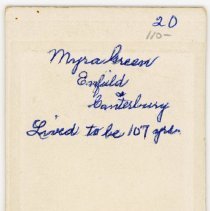 20
110-
Myra Green
Enfield
Canterbury
Lived to be 107 yrs.